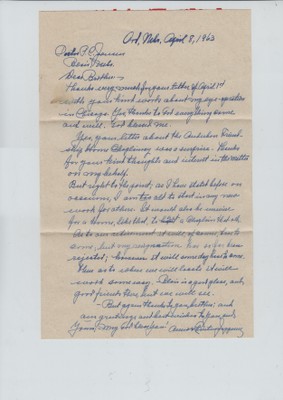 Ord, Nebr. April 8, 1963
Pastor P. C. Jensen
Blair, Nebr.
Dear Brother:
Thanks very much for your letter of April 1st
with your kind words about my eye-operation
in Chicago. Yes, thanks to God everything came
out well. God blessed me.
Yes, your letter about the Danish
Home Chaplaincy was a surprise. Thanks
for your kind thoughts and interest in the matter
on my behalf.
But right to the point; as I have stated before on
occasions, I am too old to start in any new
work for others. It would also be
for a Home, like that, to a Chaplain that old.
As to our retirement it will, of course, have to
come, but my resignation here so far been
rejected; however it will someday have to come.
Then as to where we will locate it will
some easy. Blair is a good place, and
good friends there, but we will see.
- But again thanks to you, brother; and
our greetings and best wishes to you, and
Yours,